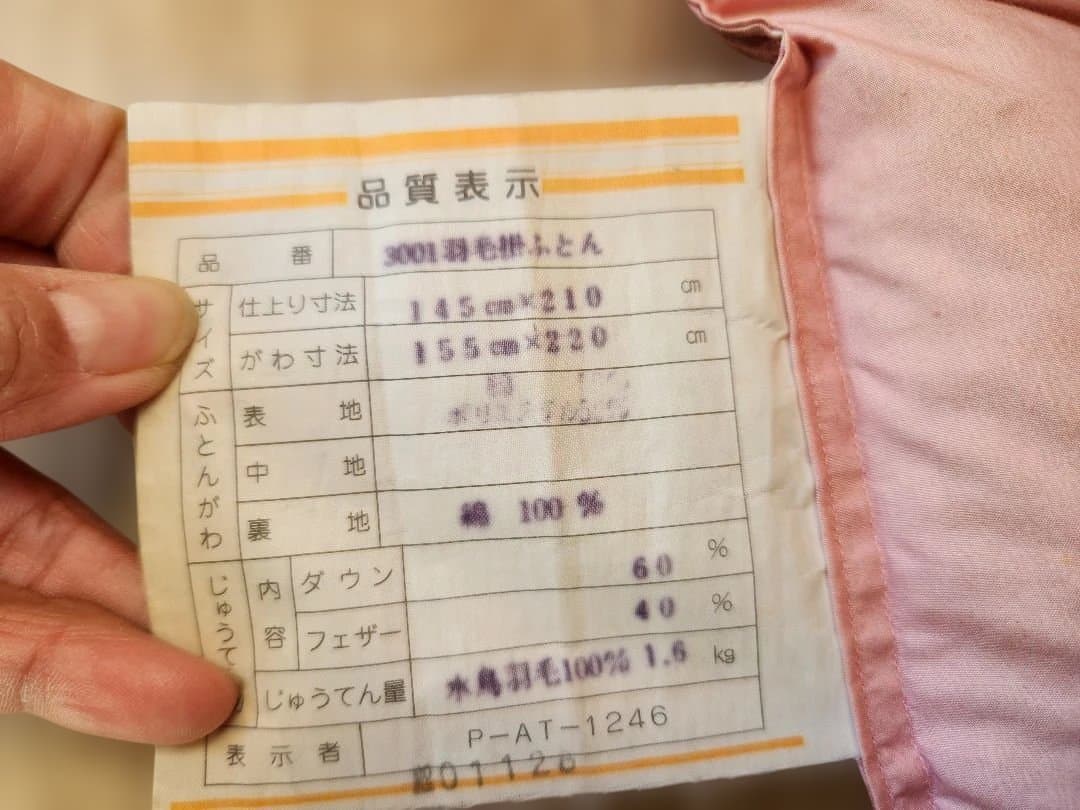 品質表示
品番 3001羽毛掛ふとん
サイズ 仕上り寸法 145cm×210 cm
がわ寸法 155cm×220 cm
ふとんがわ 表地
ポリエステル
中地
裏地 綿 100 %
じゅうて 内容 ダウン 60 %
フェザー 40 %
じゅうてん量 水鳥羽毛100% 1.6 kg
表示者 P-AT-1246
01126